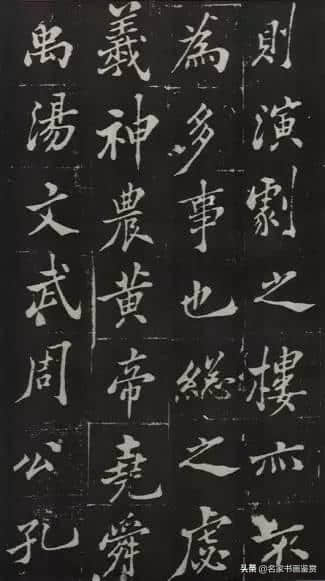 則演劇之樓亦不
為多事也總之虙
羲神農黃帝堯舜
禹湯文武周公孔
头条 @名家书画鉴赏